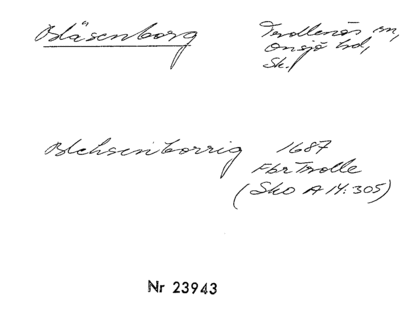 Bläsenborg
Trollenäs sn,
Onsjö hd,
Sk.
Blehsenborrig 1687
Fbr Trolle
(Sko A IV:305)
Nr 23943